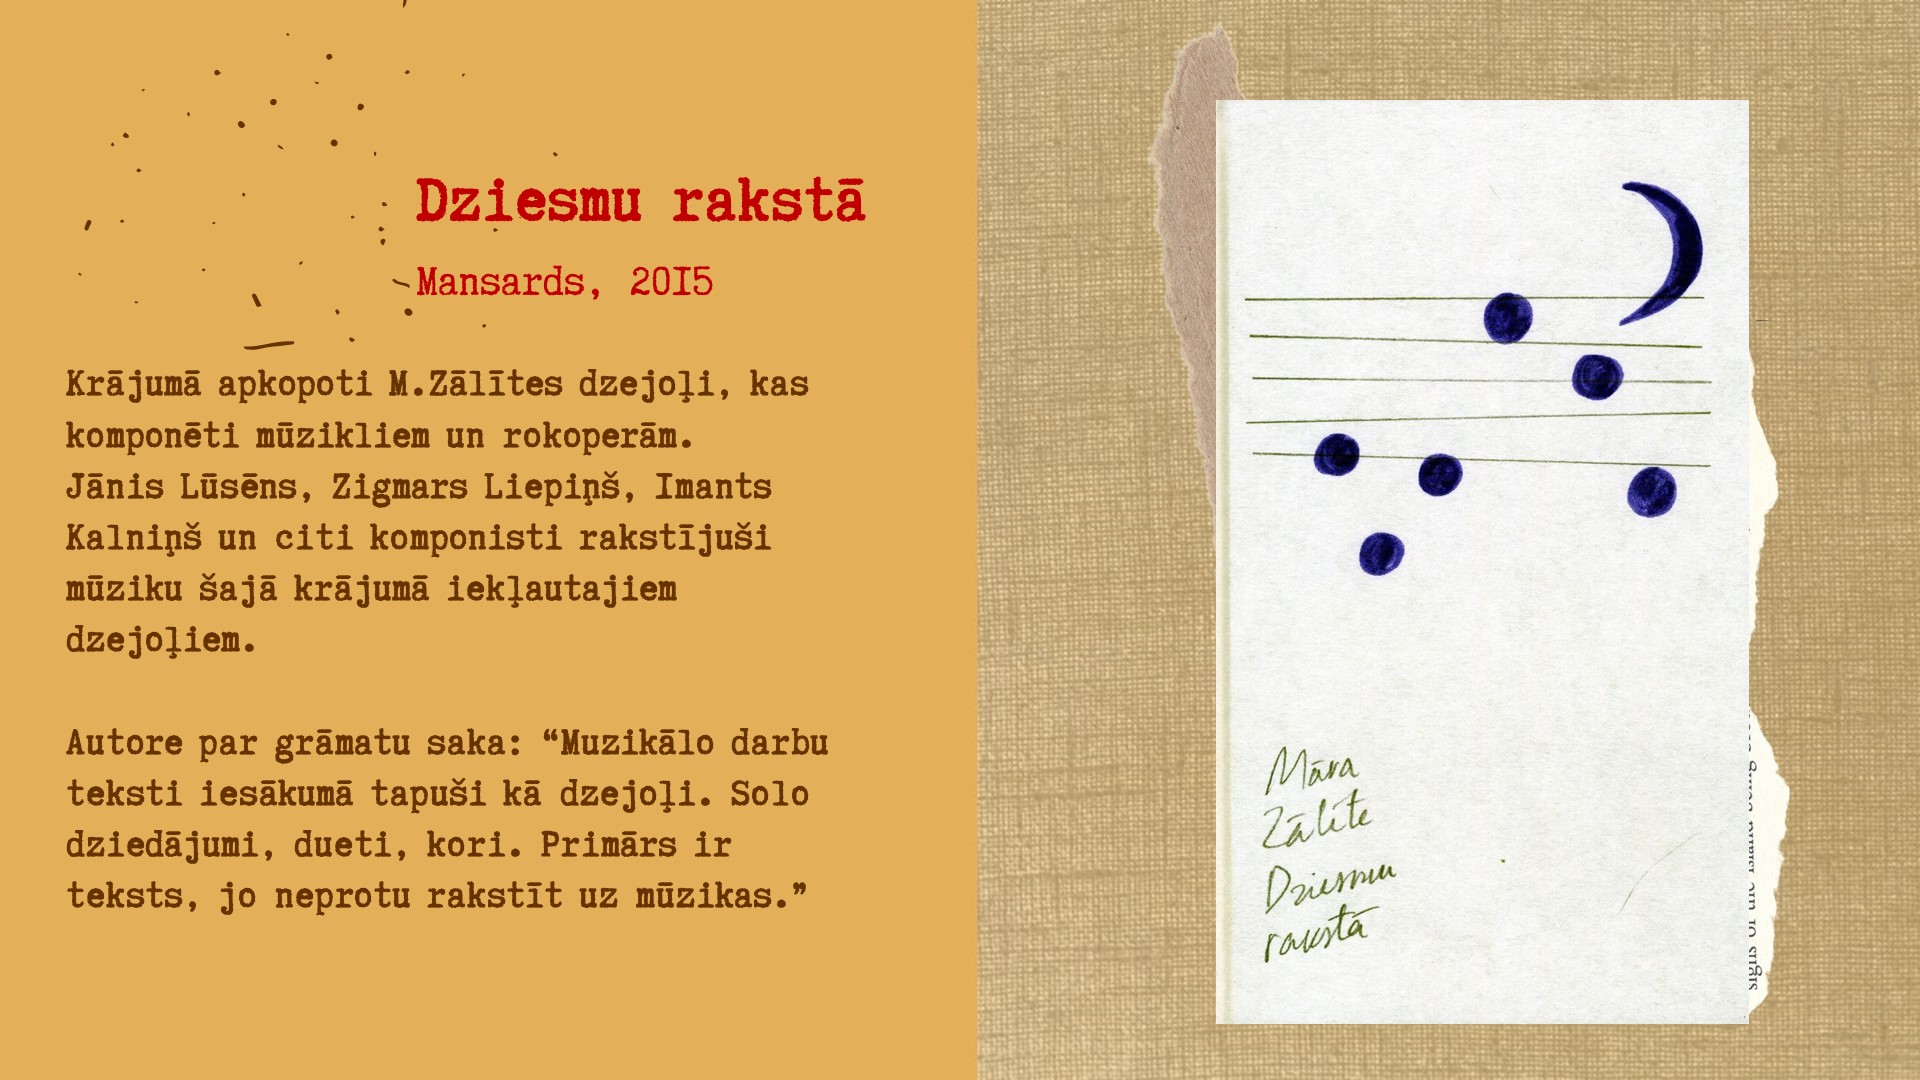 Dziesmu rakstā
Mansards, 2015
Krājumā apkopoti M.Zālītes dzejoļi, kas
komponēti mūzikliem un rokoperām.
Jānis Lūsēns, Zigmars Liepiņš, Imants
Kalniņš un citi komponisti rakstījuši
mūziku šajā krājumā iekļautajiem
dzejoļiem.
Autore par grāmatu saka: “Muzikālo darbu
teksti iesākumā tapuši kā dzejoļi. Solo
dziedājumi, dueti, kori. Primārs ir
teksts, jo neprotu rakstīt uz mūzikas.”
Māra
Zālīte
Dziesmu
rakstā